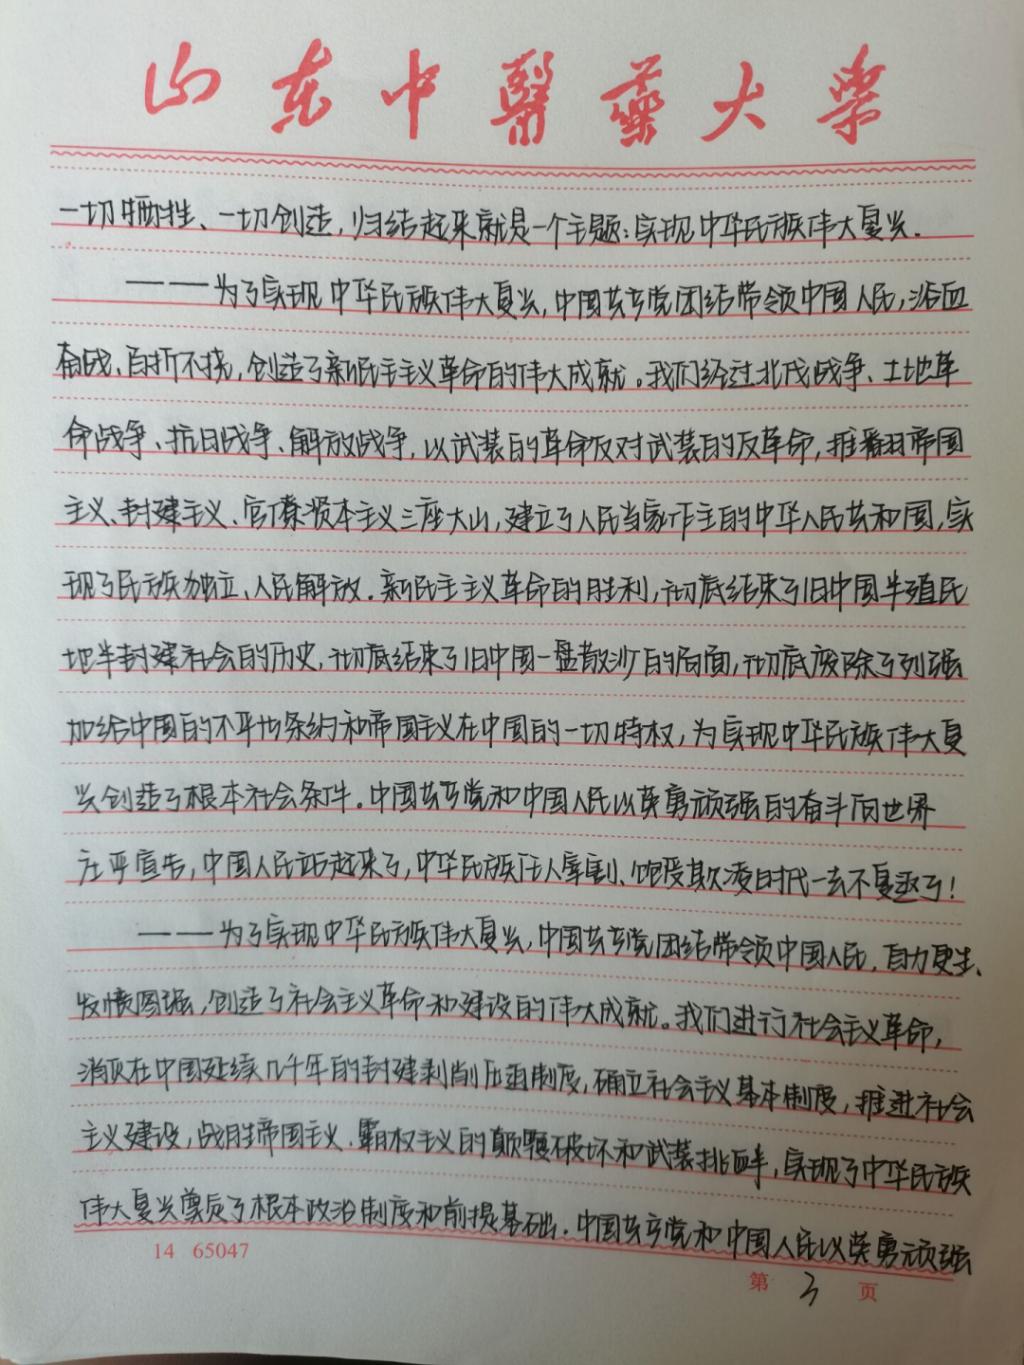 山东中医药大学
一切牺牲、一切创造，归结起来就是一个主题：实现中华民族伟大复兴．
——为了实现中华民族伟大复兴，中国共产党团结带领中国人民，浴血
奋战、百折不挠，创造了新民主主义革命的伟大成就。我们经过北伐战争、土地革
命战争、抗日战争、解放战争，以武装的革命反对武装的反革命，推翻帝国
主义、封建主义、官僚资本主义三座大山，建立了人民当家作主的中华人民共和国，实
现了民族独立、人民解放．新民主主义革命的胜利，彻底结束了旧中国半殖民
地半封建社会的历史，彻底结束了旧中国一盘散沙的局面，彻底废除了列强
加给中国的不平等条约和帝国主义在中国的一切特权，为实现中华民族伟大复
兴创造了根本社会条件．中国共产党和中国人民以英勇顽强的奋斗向世界
庄严宣告，中国人民站起来了，中华民族任人宰割、饱受欺凌的时代一去不复返了！
——为了实现中华民族伟大复兴，中国共产党团结带领中国人民，自力更生、
发愤图强，创造了社会主义革命和建设的伟大成就。我们进行社会主义革命，
消灭在中国延续几千年的封建剥削压迫制度，确立社会主义基本制度，推进社会
主义建设，战胜帝国主义、霸权主义的颠覆破坏和武装挑衅，实现了中华民族
伟大复兴奠定了根本政治制度和前提基础．中国共产党和中国人民以英勇顽强
14 65047
第 3 页